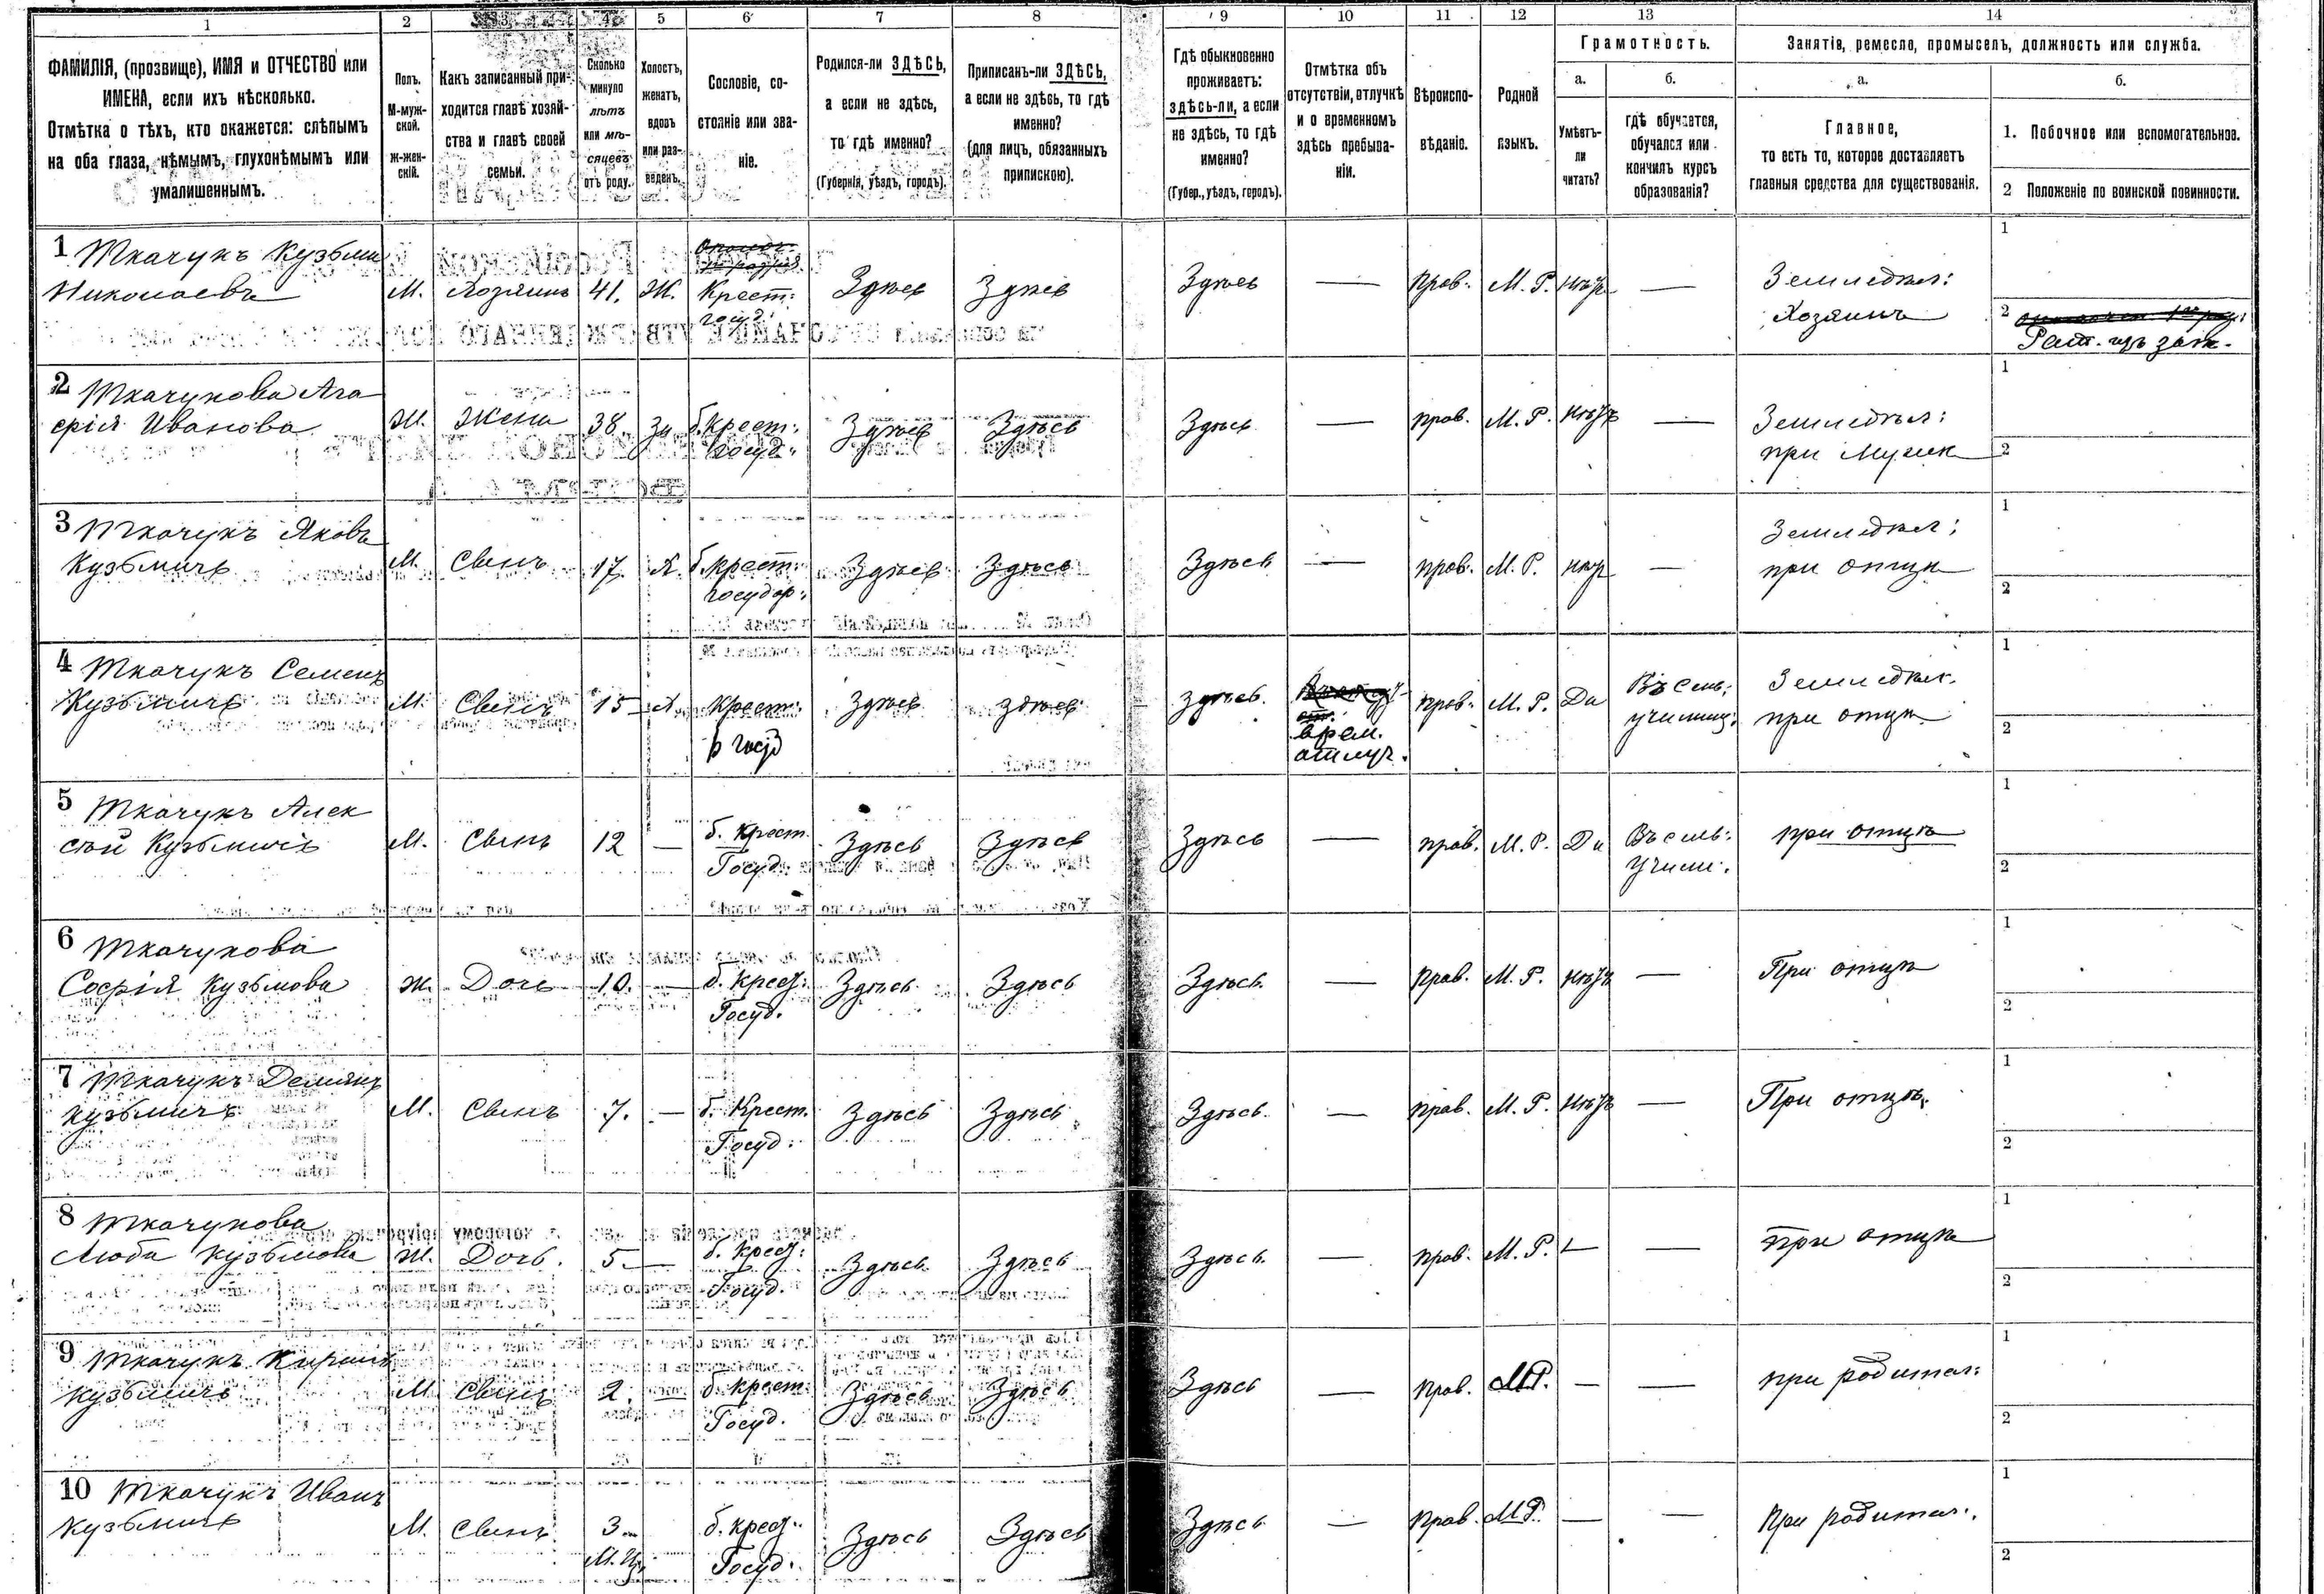 1 2 3 4 5 6 7 8 9 10 11 12 13 14
ФАМИЛІЯ, (прозвище), ИМЯ и ОТЧЕСТВО или
ИМЕНА, если ихъ нѣсколько.
Отмѣтка о тѣхъ, кто окажется: слѣпымъ
на оба глаза, нѣмымъ, глухонѣмымъ или
умалишеннымъ.
Полъ.
М-муж-
ской.
ж-жен-
скій.
Какъ записанный при-
ходится главѣ хозяй-
ства и главѣ своей
семьи.
Сколько
минуло
лѣтъ
или мѣ-
сяцевъ
отъ роду.
Холостъ,
женатъ,
вдовъ
или раз-
веденъ.
Сословіе, со-
стояніе или зва-
ніе.
Родился-ли ЗДѢСЬ,
а если не здѣсь,
то гдѣ именно?
(Губернія, уѣздъ, городъ).
Приписанъ-ли ЗДѢСЬ,
а если не здѣсь, то гдѣ
именно?
(для лицъ, обязанныхъ
припискою).
Гдѣ обыкновенно
проживаетъ:
здѣсь-ли, а если
не здѣсь, то гдѣ
именно?
(Губер., уѣздъ, городъ).
Отмѣтка объ
отсутствіи, отлучкѣ
и о временномъ
здѣсь пребыва-
ніи.
Вѣроиспо-
вѣданіе.
Родной
языкъ.
Грамотность.
а.
Умѣетъ-
ли
читать?
б.
гдѣ обучается,
обучался или
кончилъ курсъ
образованія?
Занятія, ремесло, промыселъ, должность или служба.
а.
Главное,
то есть то, которое доставляетъ
главныя средства для существованія.
б.
1. Побочное или вспомогательное.
2 Положеніе по воинской повинности.
1 Ткачукъ Кузьма
Николаевъ
М. Хозяинъ 41. Ж. Крест:
госуд:
Здѣсь Здѣсь Здѣсь — Прав. М. Р. нѣтъ —
Земледѣл:
Хозяинъ
1
2
Рат. изъ зап.
2 Ткачукова Ага
фія Иванова
Ж. Жена 38. За б. Крест:
Госуд.
Здѣсь Здѣсь Здѣсь — прав. М. Р. нѣтъ —
Земледѣл:
при Мужѣ
1
2
3 Ткачукъ Яковъ
Кузьмичъ
М. Сынъ 17. Х. б. Крест:
государ:
Здѣсь Здѣсь Здѣсь — прав. М. Р. нѣтъ —
Земледѣл:
при отцѣ
1
2
4 Ткачукъ Семенъ
Кузьмичъ
М. Сынъ 15 Х. Крест:
б госуд
Здѣсь Здѣсь Здѣсь.
врем.
отлуч.
прав. М. Р. Да
Въ сель:
училищ:
Земледѣл.
при отцѣ
1
2
5 Ткачукъ Алек
сѣй Кузьмичъ
М. Сынъ 12 — б. Крест.
Госуд.
Здѣсь Здѣсь Здѣсь — прав. М. Р. Да
Въ сель:
Учили:
при отцѣ
1
2
6 Ткачукова
Софія Кузьмова
Ж. Дочь 10. — б. Крест:
Госуд.
Здѣсь Здѣсь Здѣсь. — Прав. М. Р. нѣтъ — При отцѣ
1
2
7 Ткачукъ Демянъ
Кузьмичъ
М. Сынъ 7. — б. Крест.
Госуд:
Здѣсь Здѣсь Здѣсь. — Прав. М. Р. нѣтъ — При отцѣ.
1
2
8 Ткачукова
Люба Кузьмова
Ж. Дочь. 5. — б. Крест:
Госуд.
Здѣсь Здѣсь Здѣсь. — Прав. М. Р. — — при отцѣ
1
2
9 Ткачукъ
Кузьмичъ
М. Сынъ 2. — б. Крест:
Госуд.
Здѣсь Здѣсь Здѣсь — Прав. М.Р. — — при родител:
1
2
10 Ткачукъ Иванъ
Кузьмичъ
М. Сынъ 3
М-ца
б. Крест:
Госуд.
Здѣсь Здѣсь Здѣсь — Прав. М.Р. — — При родител:
1
2